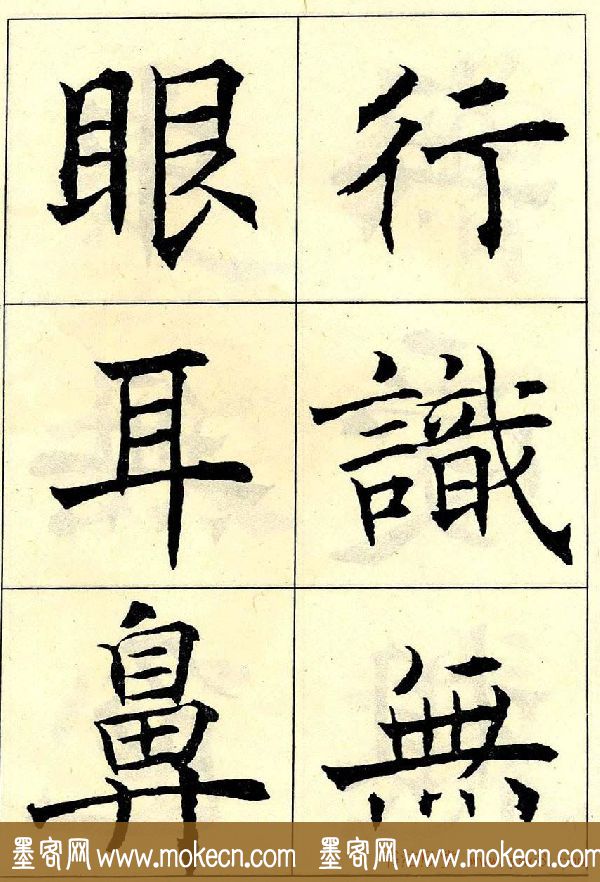 行識無
眼耳鼻
墨客网 www.mokecn.com 墨客网 www.mokecn.com